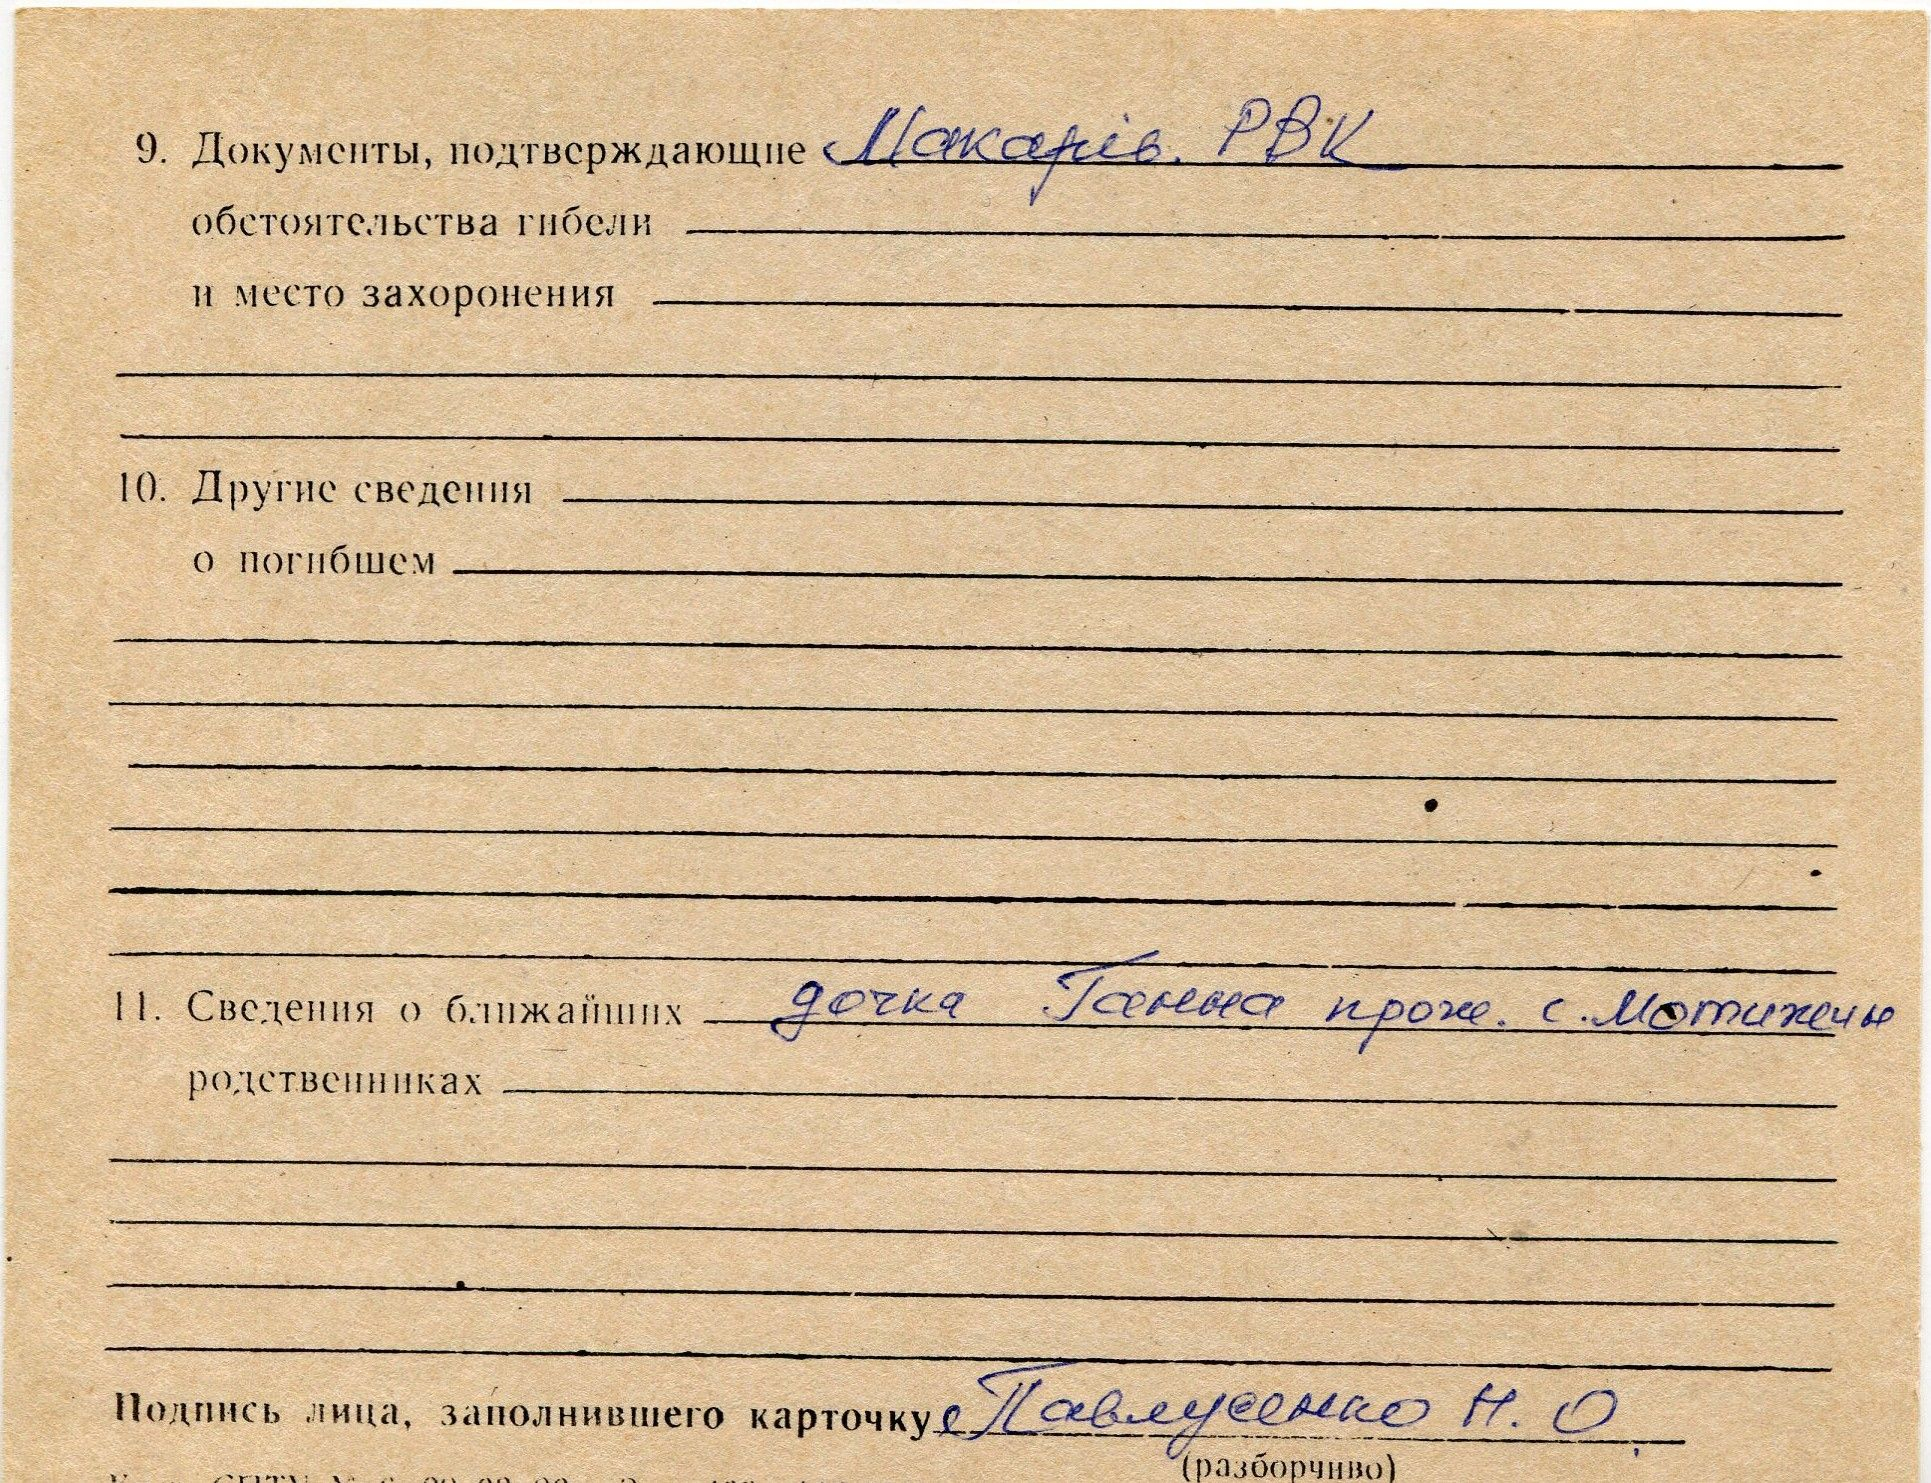 9. Документы, подтверждающие Макарів. РВК
обстоятельства гибели
и место захоронения
10. Другие сведения
о погибшем
11. Сведения о ближайших дочка Ганна прож. с. Мотижечи
родственниках
Подпись лица, заполнившего карточку Павлусенко Н. О.
(разборчиво)